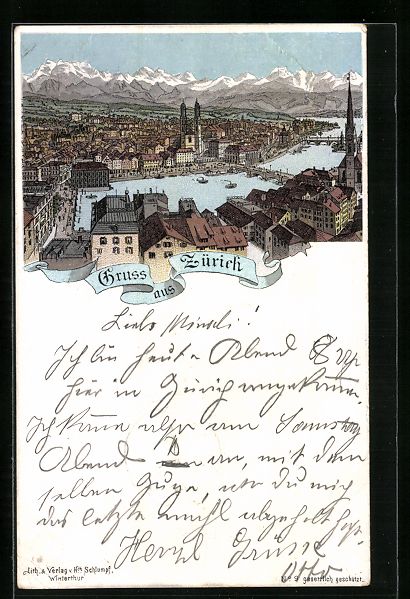 Gruss
aus
Zürich
Liebe Mineli!
Ich bin heute Abend 8 Uhr
hier in Zürich angekommen.
Ich komme also am Samstag
Abend an, mit dem
selben Zuge, wo du mich
das letzte mahl abgeholt hast.
Herzl Grüsse
Otto
Lith. & Verlag v. Hch Schlumpf,
Winterthur.
No 9 gesetzlich geschützt.